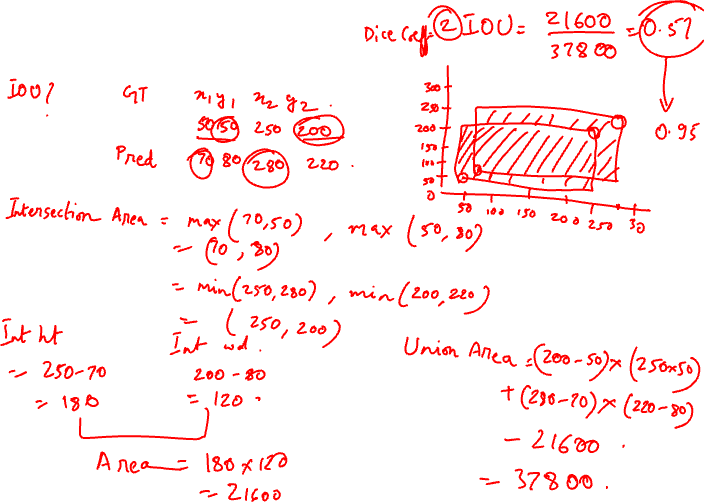 Dice Coeff. ② IOU = 21600 / 37800 = 0.57
0.95
IOU?
GT x₁ y₁ x₂ y₂
50 150 250 200
Pred 70 80 280 220 .
300
250
200
150
100
50
0
50 100 150 200 250 30
Intersection Area = max (70,50) , max (50,80)
= (70, 80)
= min(250,280) , min(200,220)
= (250, 200)
Int ht
= 250-70
= 180
Int wd.
200-80
= 120 .
Area = 180 x 120
= 21600
Union Area = (200-50) x (250x50)
+ (280-70) x (220-80)
- 21600 .
= 37800 .